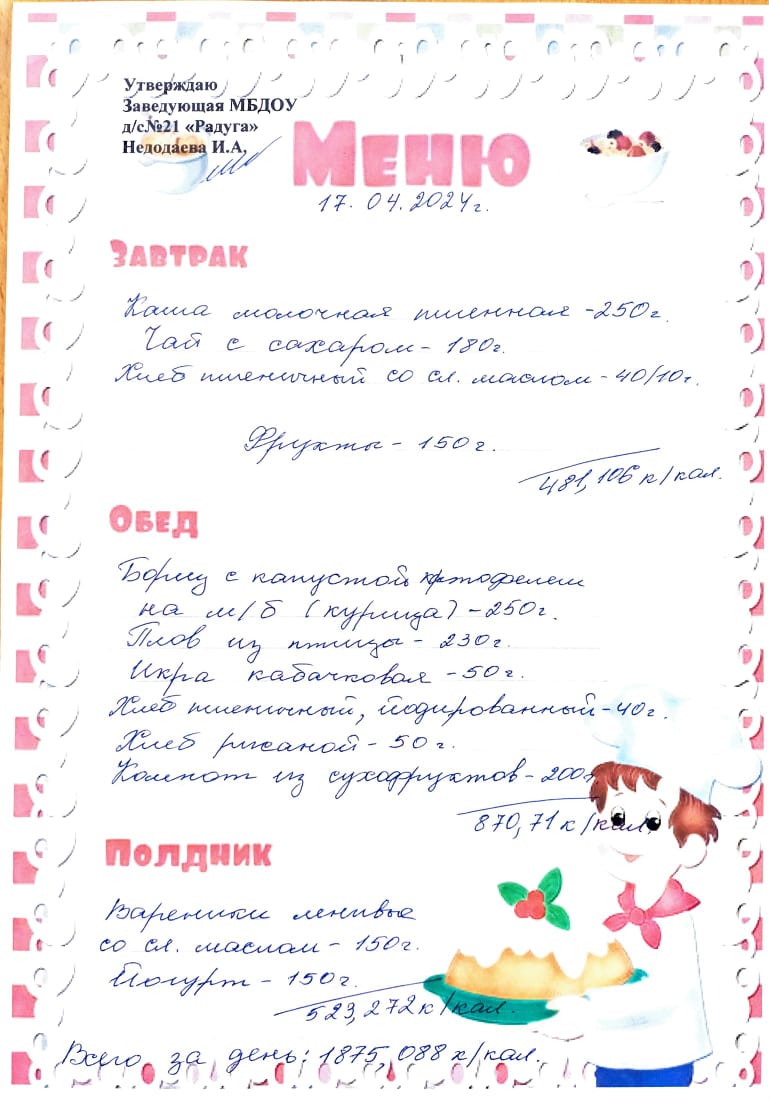 Утверждаю
Заведующая МБДОУ
д/с№21 «Радуга»
Недодаева И.А.
Меню
17.04.2024г.
Завтрак
Каша молочная пшенная - 250г.
Чай с сахаром - 180г.
Хлеб пшеничный со сл. маслом - 40/10г.
Фрукты - 150г.
481,106 к/кал.
Обед
Борщ с капустой картофелем
на м/б (курица) - 250г.
Плов из птицы - 230г.
Икра кабачковая - 50г.
Хлеб пшеничный, йодированный - 40г.
Хлеб ржаной - 50г.
Компот из сухофруктов - 200г
870,71 к/кал.
Полдник
Вареники ленивые
со сл. маслом - 150г.
Йогурт - 150г.
523,272 к/кал.
Всего за день: 1875,088 к/кал.